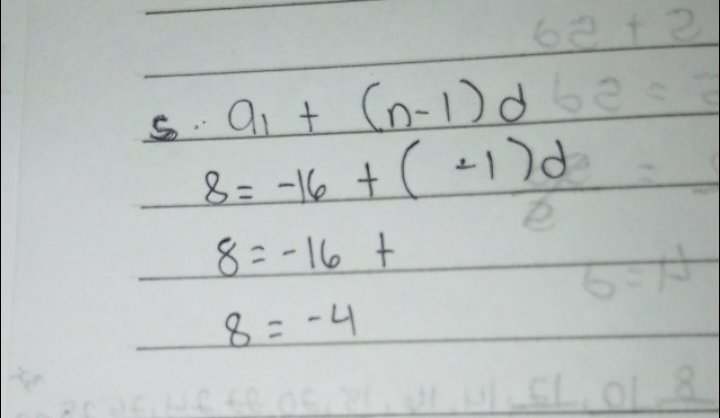 5. a₁ + (n-1)d
8 = -16 + ( -1)d
8 = -16 +
8 = -4